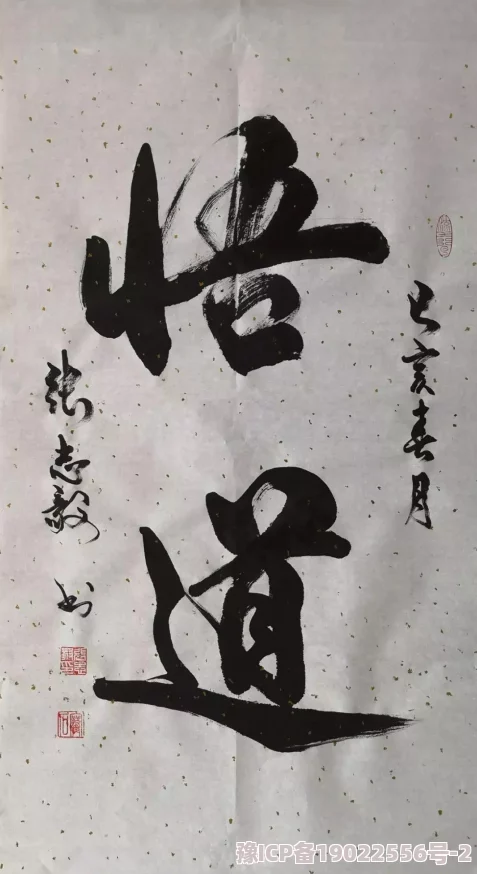 己亥春月
悟道
张志毅书
豫ICP备19022556号-2